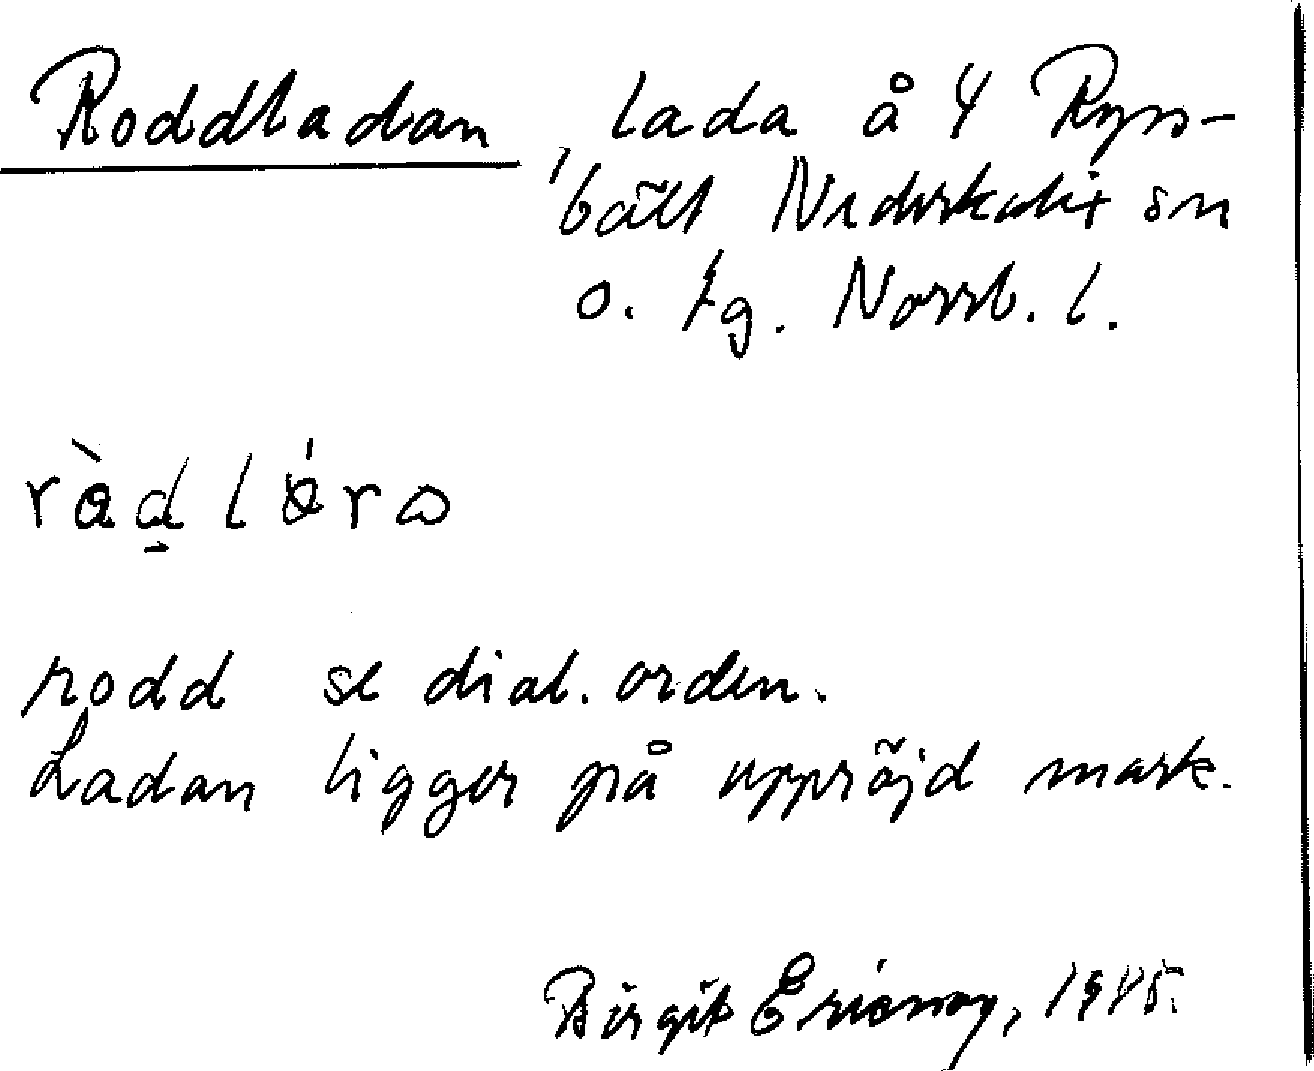 Roddladan, lada å 4 Ryss-
bält Nederkalix sn
o. tg. Norrb. l.
rodd se dial. orden.
Ladan ligger på uppröjd mark.
Birgit Ericson, 1945.